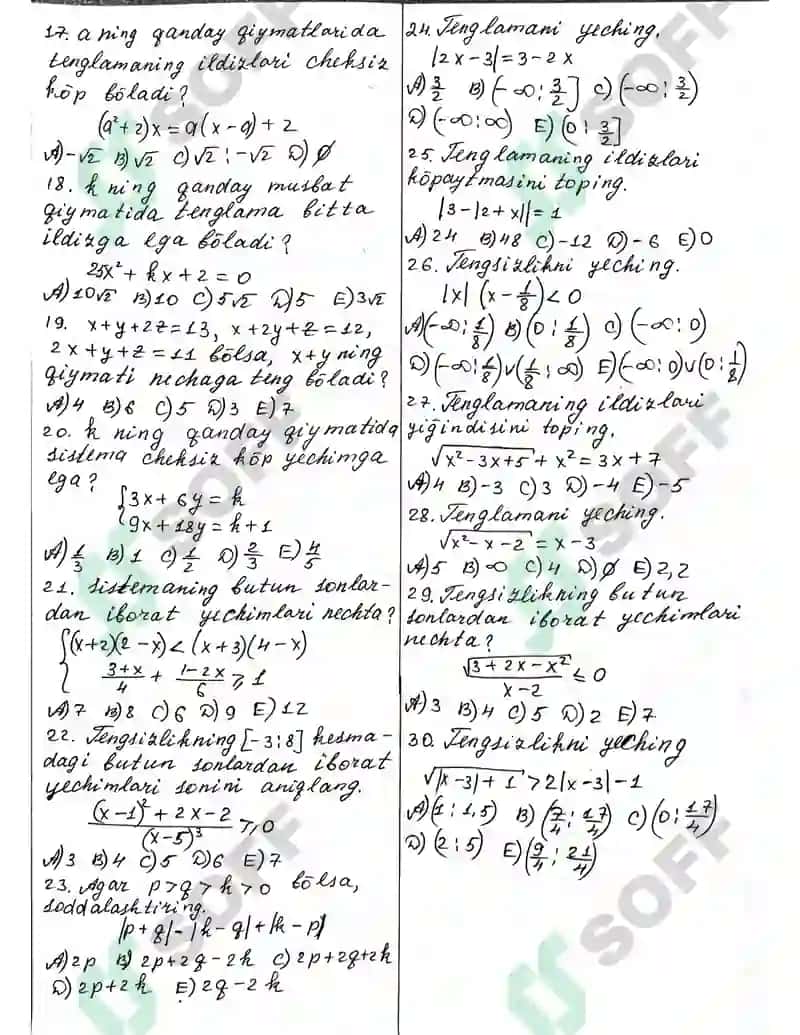 17. a ning qanday qiymatlarida
tenglamaning ildizlari cheksiz
kōp bōladi?
(a²+2)x = a(x-a)+2
A) -√2 B) √2 C) √2 ; -√2 D) ∅
18. k ning qanday musbat
qiymatida tenglama bitta
ildizga ega bōladi?
25x² + kx + 2 = 0
A) 10√2 B) 10 C) 5√2 D) 5 E) 3√2
19. x+y+2z=13, x+2y+z=12,
2x+y+z=11 bōlsa, x+y ning
qiymati nechaga teng bōladi?
A) 4 B) 6 C) 5 D) 3 E) 7
20. k ning qanday qiymatida
sistema cheksiz kōp yechimga
ega?
{3x + 6y = k
9x + 18y = k+1
A) 1/3 B) 1 C) 1/2 D) 2/3 E) 4/5
21. Sistemaning butun sonlar-
dan iborat yechimlari nechta?
{(x+2)(2-x) < (x+3)(4-x)
(3+x)/4 + (1-2x)/6 ⩾ 1
A) 7 B) 8 C) 6 D) 9 E) 12
22. Tengsizlikning [-3;8] kesma-
dagi butun sonlardan iborat
yechimlari sonini aniqlang.
((x-1)² + 2x-2)/(x-5)³ ⩾ 0
A) 3 B) 4 C) 5 D) 6 E) 7
23. Agar p>q>k>0 bōlsa,
soddalashtiring.
|p+q|-|k-q|+|k-p|
A) 2p B) 2p+2q-2k C) 2p+2q+2k
D) 2p+2k E) 2q-2k
24. Tenglamani yeching.
|2x-3|=3-2x
A) 3/2 B) (-∞; 3/2] C) (-∞; 3/2)
D) (-∞; ∞) E) (0; 3/2]
25. Tenglamaning ildizlari
kōpaytmasini toping.
|3-|2+x||=1
A) 24 B) 48 C) -12 D) -6 E) 0
26. Tengsizlikni yeching.
|x| (x - 1/8) < 0
A) (-∞; 1/8) B) (0; 1/8) C) (-∞; 0)
D) (-∞; 1/8)∨(1/8; ∞) E) (-∞; 0)∨(0; 1/8)
27. Tenglamaning ildizlari
yiğindisini toping.
√(x²-3x+5) + x² = 3x+7
A) 4 B) -3 C) 3 D) -4 E) -5
28. Tenglamani yeching.
√(x²-x-2) = x-3
A) 5 B) ∞ C) 4 D) ∅ E) 2,2
29. Tengsizlikning butun
sonlardan iborat yechimlari
nechta?
√(3+2x-x²)/(x-2) ≤ 0
A) 3 B) 4 C) 5 D) 2 E) 7
30. Tengsizlikni yeching
√(|x-3|+1) > 2|x-3|-1
A) (1; 1,5) B) (7/4; 17/4) C) (0; 17/4)
D) (2; 5) E) (9/4; 21/4)
SOFF
SOFF
SOFF
SOFF